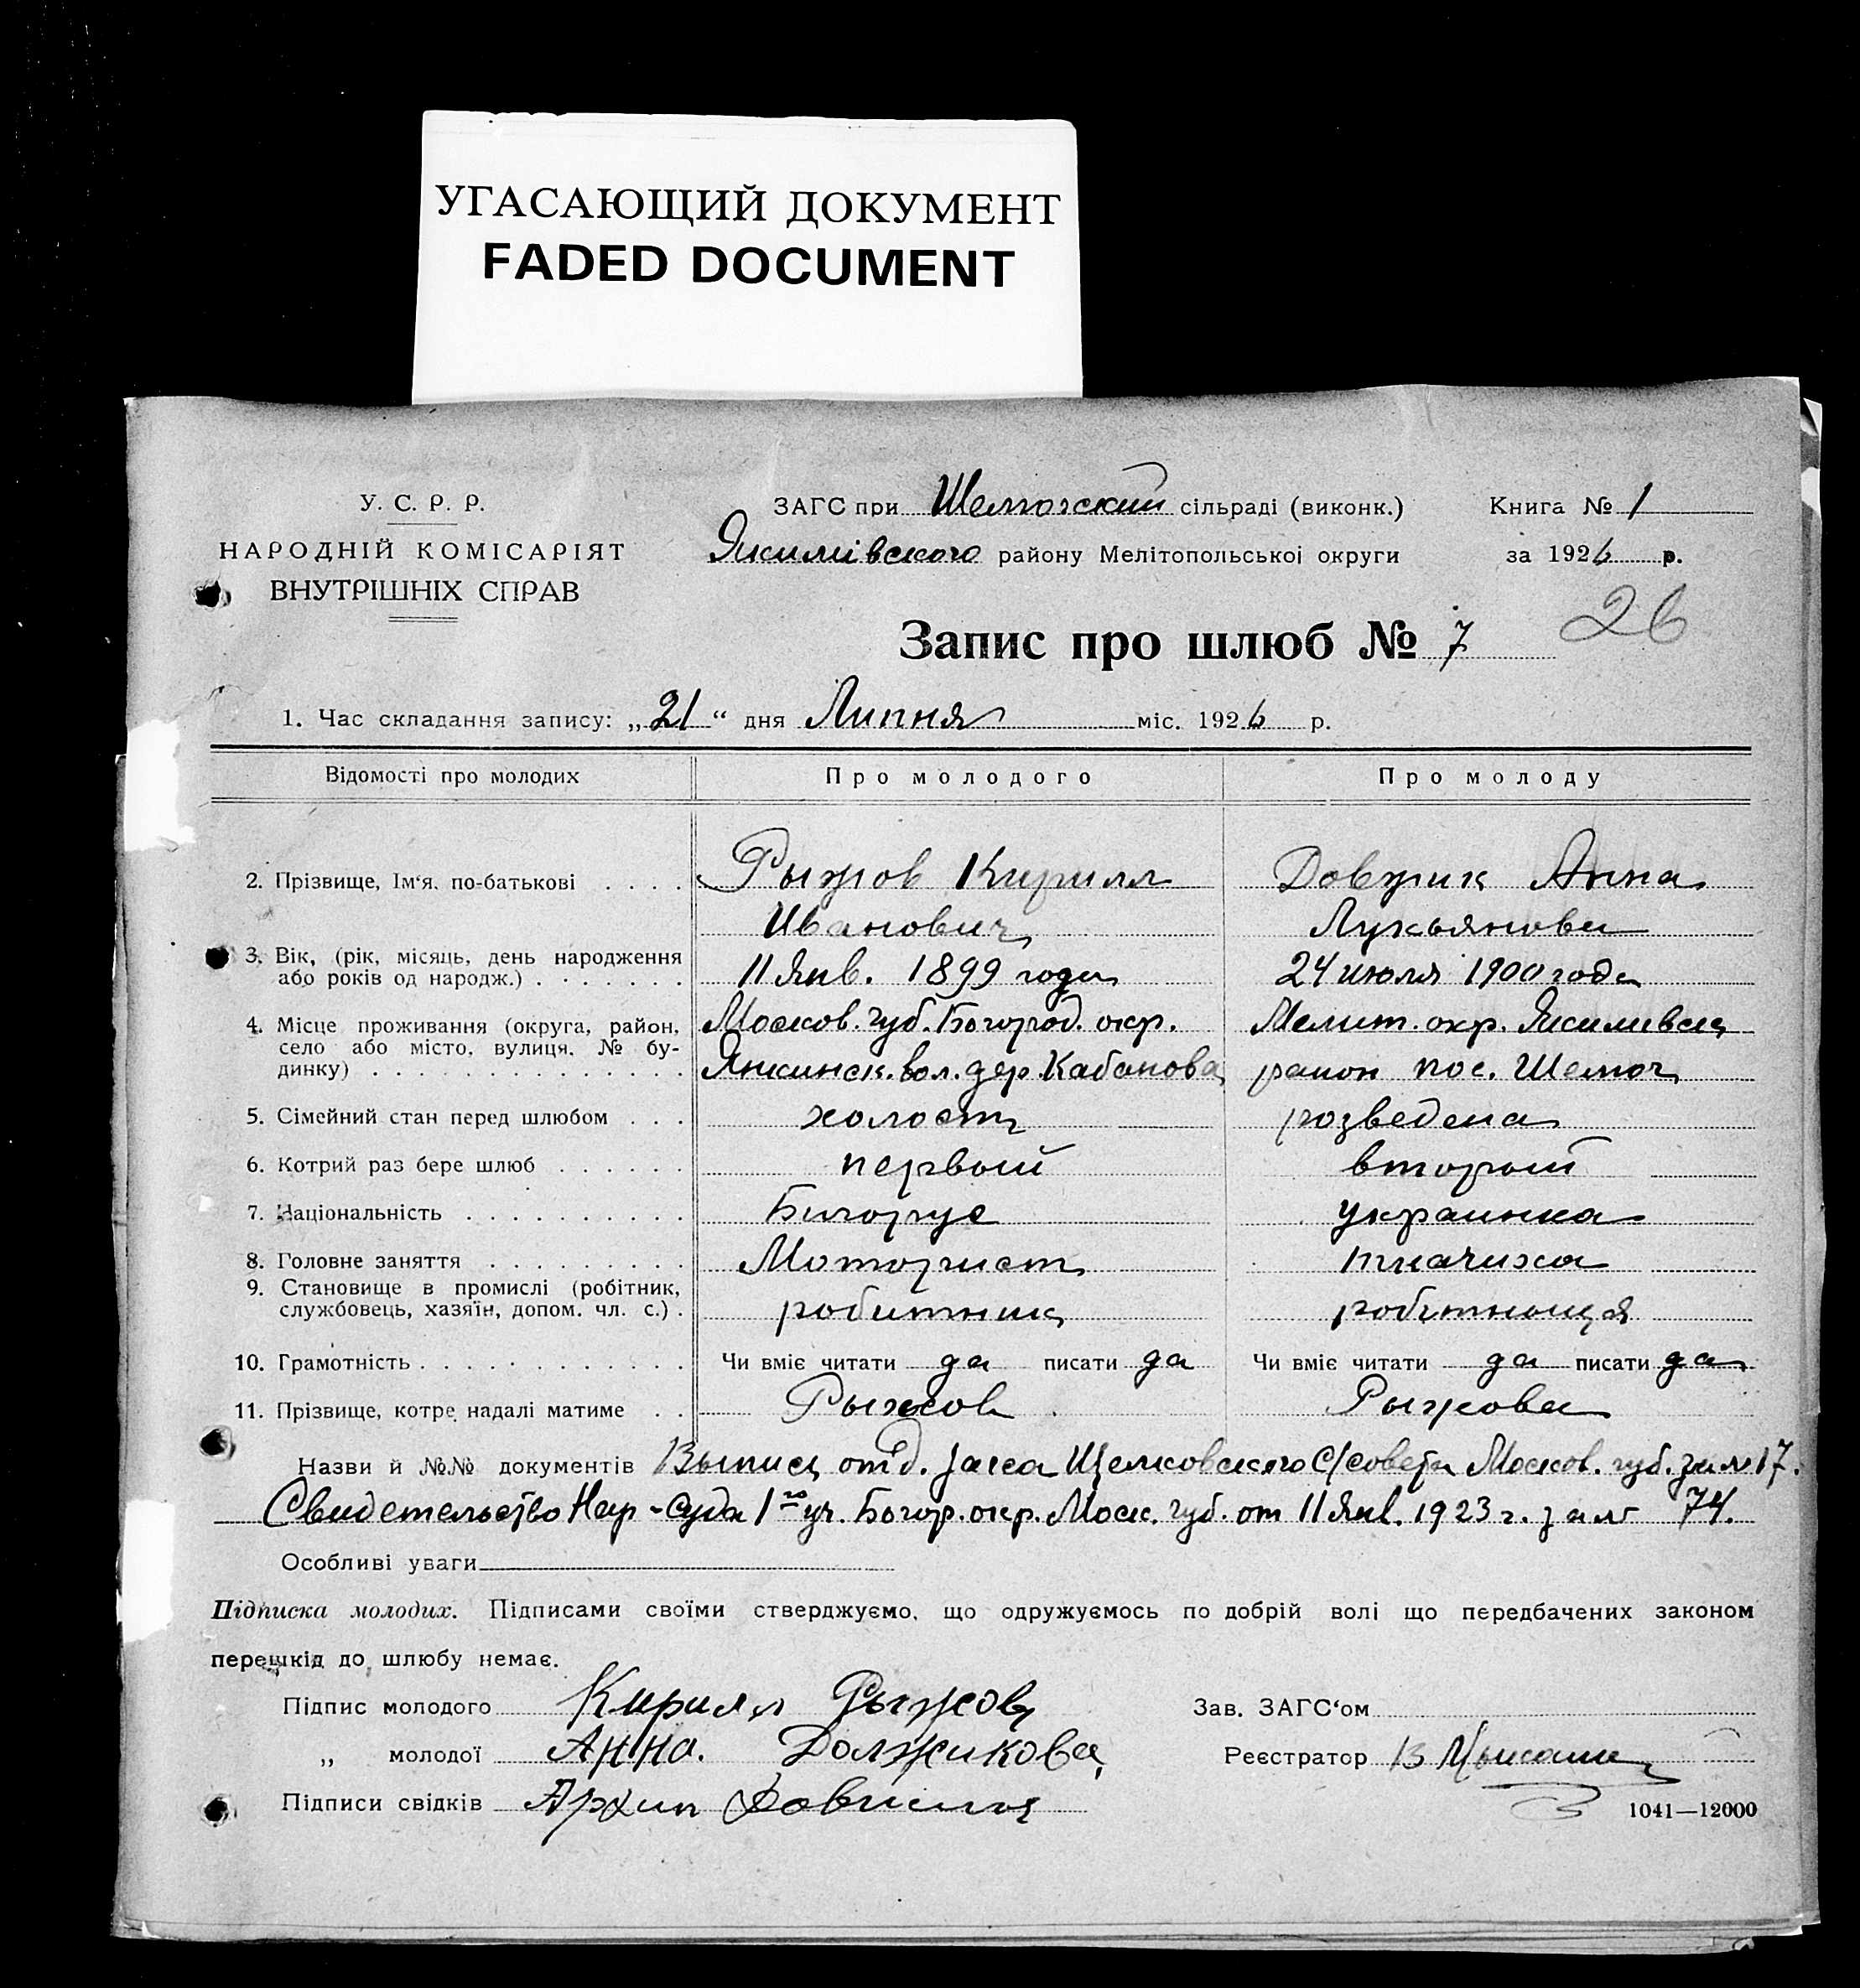 УГАСАЮЩИЙ ДОКУМЕНТ
FADED DOCUMENT
У. С. Р. Р.
НАРОДНІЙ КОМІСАРІЯТ
ВНУТРІШНІХ СПРАВ
ЗАГС при сільраді (виконк.)
Якимівского району Мелітопольської округи
Книга № 1
за 1926 р.
Запис про шлюб № 7
26
1. Час складання запису: „21“ дня Липня міс. 1926 р.
Відомості про молодих Про молодого Про молоду
2. Прізвище, Ім'я, по-батькові . . . . Рыжов Кирилл Довжик Анна
Иванович Лукьянова
3. Вік, (рік, місяць, день народження
або років од народж.) . . . . . . . 11 Янв. 1899 года 24 июля 1900 года
4. Місце проживання (округа, район, Москов. губ. Богород. окр. Мелит. окр. Якимивск
село або місто, вулиця, № бу-
динку) . . . . . . . . . . . . . . вол. дер. Кабанова район пос.
5. Сімейний стан перед шлюбом . . . холост розведена
6. Котрий раз бере шлюб . . . . . . первый вторый
7. Національність . . . . . . . . . . украинка
8. Головне заняття . . . . . . . . . Моторист ткачиха
9. Становище в промислі (робітник,
службовець, хазяїн, допом. чл. с.) . робитник
10. Грамотність . . . . . . . . . . . . Чи вміє читати да писати да Чи вміє читати да писати да
11. Прізвище, котре надалі матиме . . Рыжов Рыжова
Назви й №№ документів Выпись отд. загса Щелковского С/совета Москов. губ. за № 17.
Свидетельство Нар-Суда 1го уч. Богор. окр. Моск. губ. от 11 Янв. 1923 г. за № 74.
Особливі уваги
Підписка молодих. Підписами своїми стверджуємо, що одружуємось по добрій волі що передбачених законом
перешкід до шлюбу немає.
Підпис молодого Кирилл Рыжов Зав. ЗАГС'ом
„ молодої Анна Должикова Реєстратор
Підписи свідків Архип
1041—12000